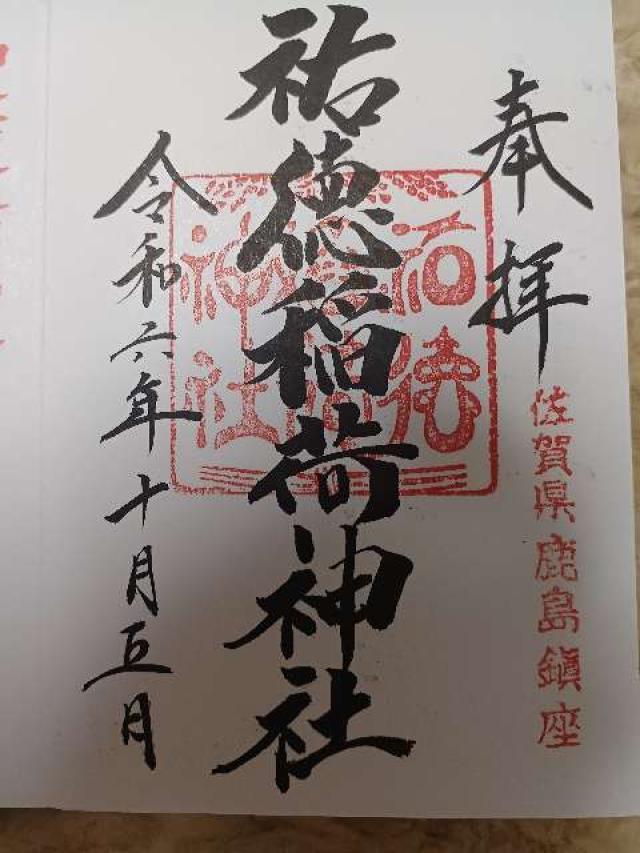 奉拝
佐賀県鹿島鎭座
祐徳稲荷神社
祐徳
神社
令和六年十月五日